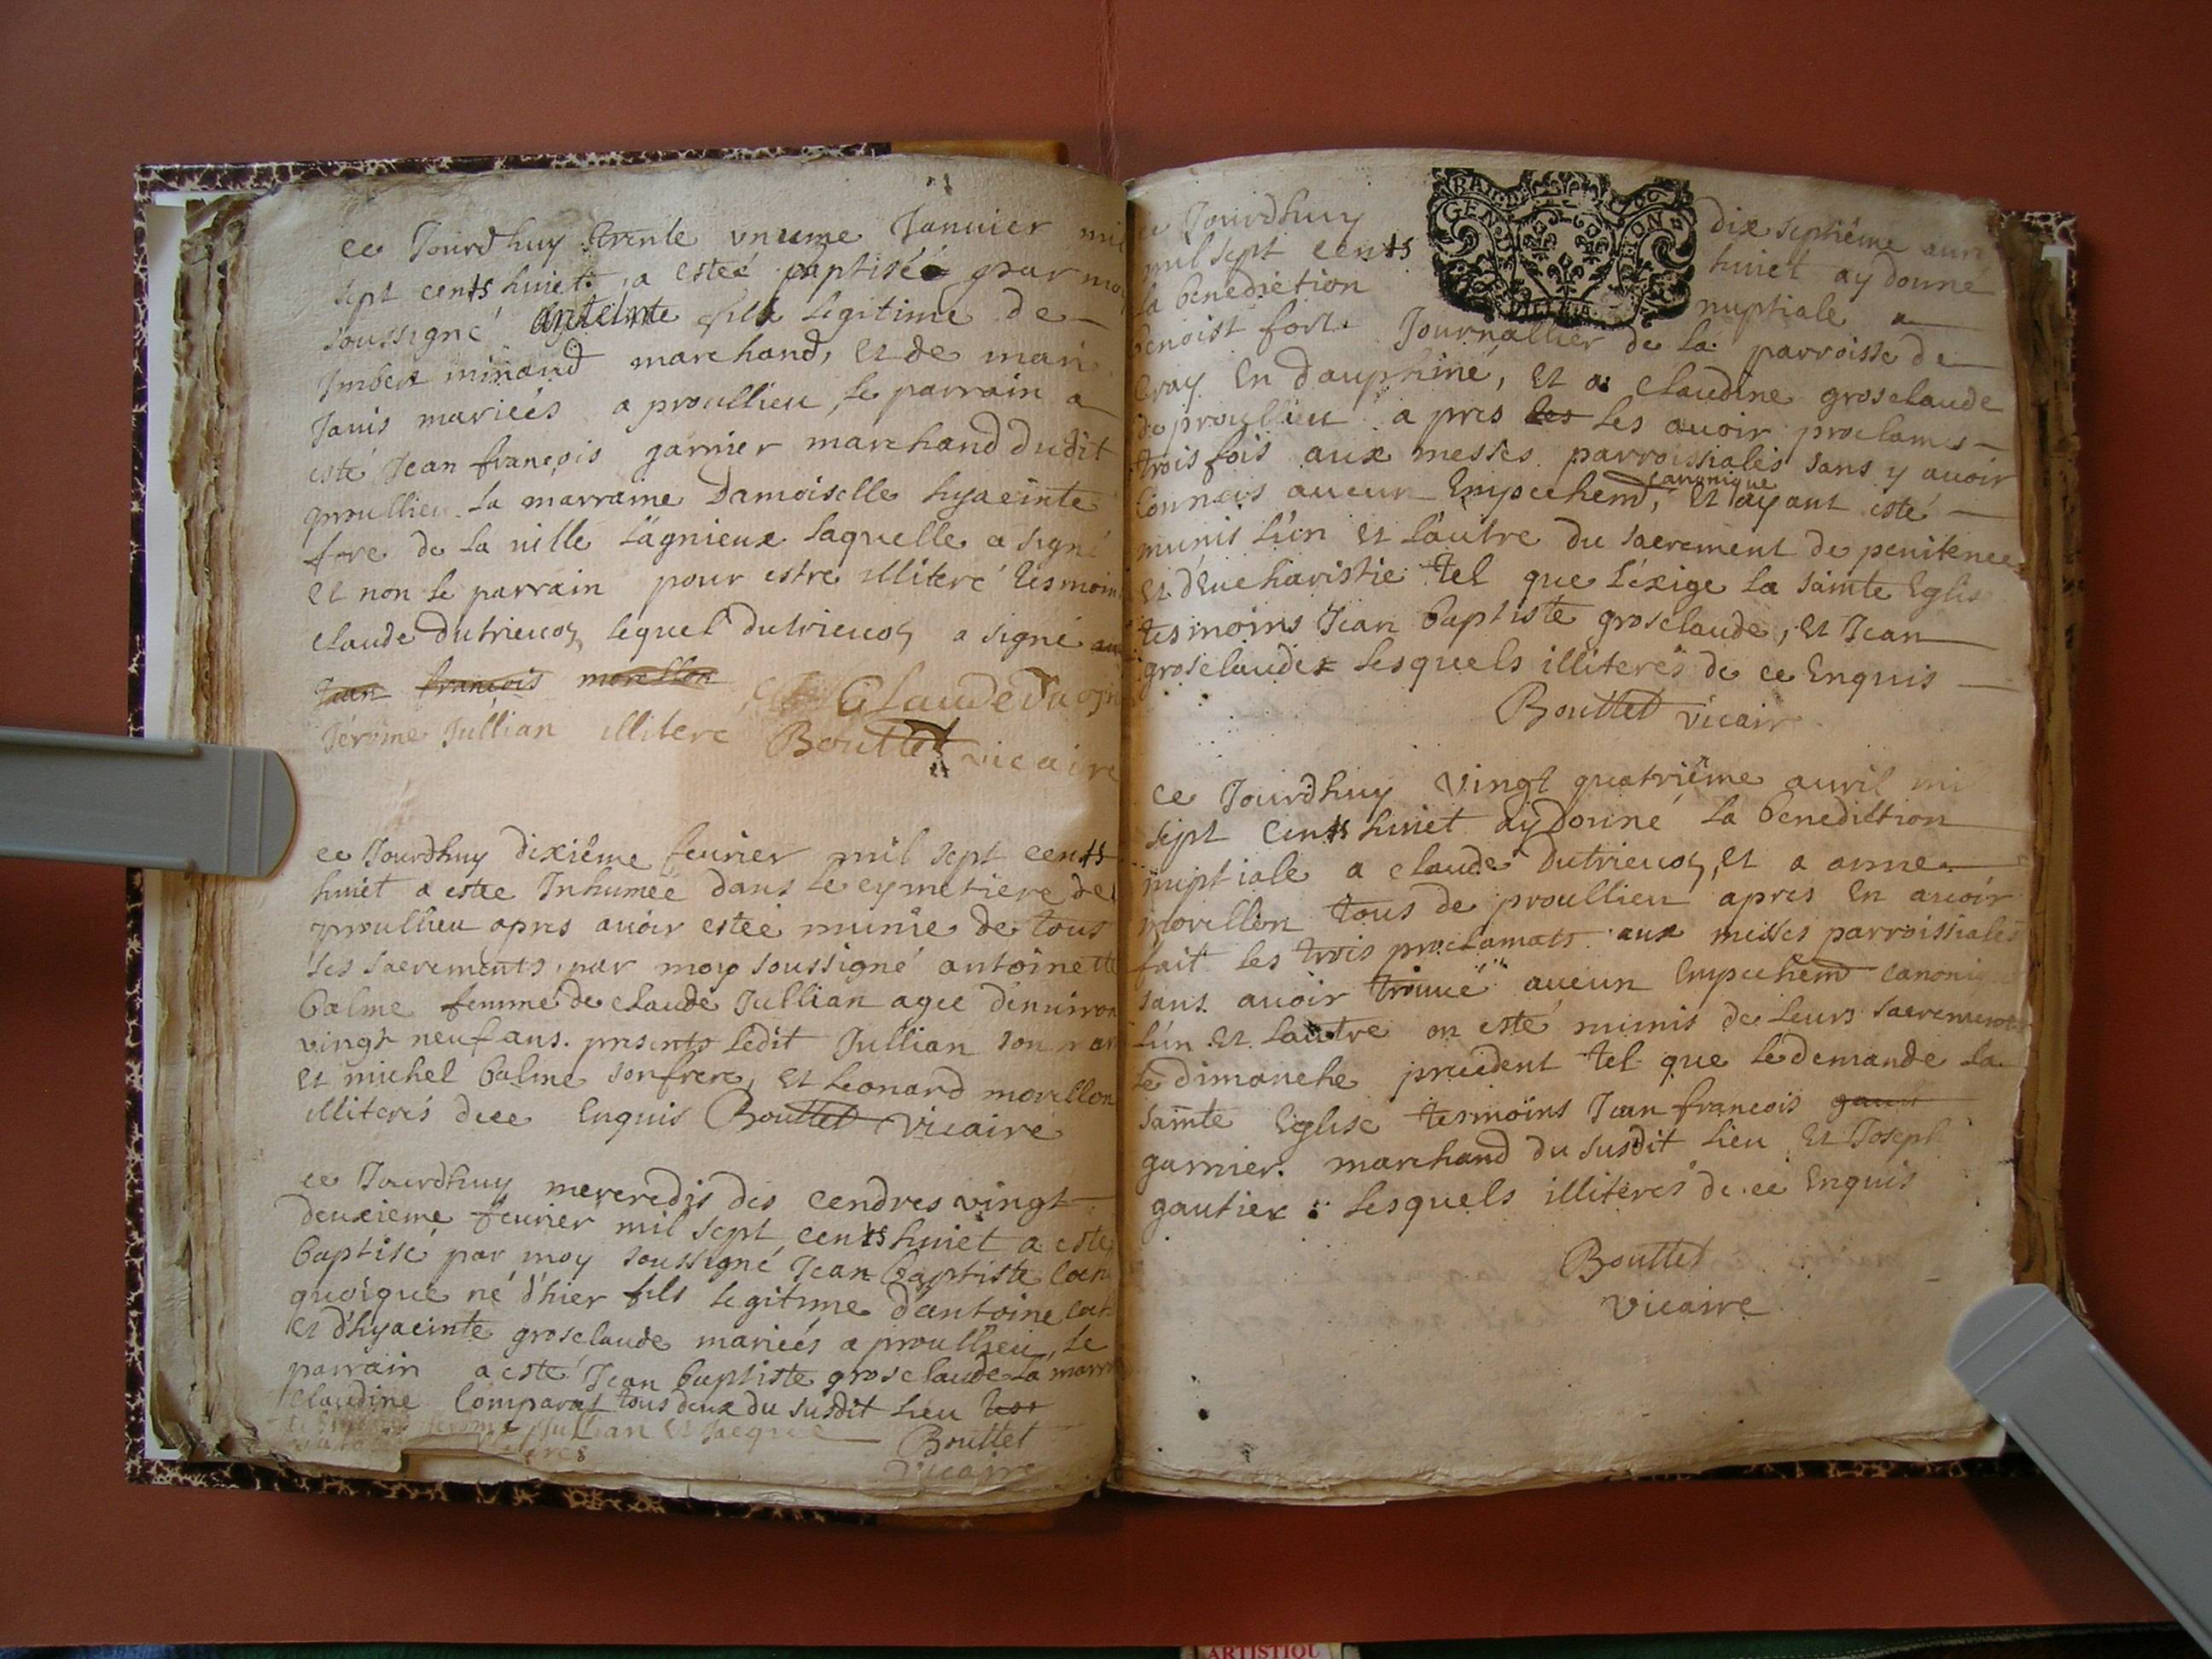 ce Jourdhuy trente unieme Januier mil
sept cents huict, a esteé baptiseé par moy
soussigné fille legitime de
Imbert minand marchand, et de marie
Janis marieés a proullieu, le parrain a
esté Jean françois garnier marchand dudit
proullieu la marraine Damoiselle hyacinte
de la uille Lagnieux laquelle a signé
et non le parrain pour estre illiteré tesmoins
claude dutrieuos, lequel dutrieuos a signé
Jean françois morellon Claude
Jérôme Jullian illiteré Bouttet vicaire
ce Jourdhuy dixiême feurier mil sept cents
huict a esteé Inhumeé dans le cymetiere de
proullieu apres auoir esteé munie de tous
ses sacrements, par moy soussigné antoinette
balme femme de claude Jullian ageé denuiron
vingt neuf ans. presents ledit Jullian son mari
et michel balme son frere, et Leonard morellon
illiterés dece Enquis Bouttet vicaire
ce Jourdhuy mercredis des cendres vingt
deuxieme feurier mil sept cents huict a esté
baptisé par moy soussigné Jean baptiste
quoique né d'hier fils legitime d'antoine
et d'hyacinte groselaude marieés a proullieu, le
parrain a esté Jean baptiste groselaude la marraine
Claudine Comparat tous deux du susdit lieu tes
Jerome Jullian et Jacque Bouttet
vicaire
ce Jourdhuy dix septiême auril
mil sept cents huict ay donné
la benediction nuptiale a
benoist fort Journallier de la parroisse de
En dauphiné, et a claudine groselaude
de proullieu apres les les auoir proclamés
trois fois aux messes parroissiales sans y auoir
connus aucun Empechemt, canonique et ayant esté
munis l'ún et l'autre du sacrement de penitence
et d'eucharistie tel que l'éxige la sainte Eglise
tesmoins Jean baptiste groselaude, et Jean
groselaude lesquels illiterés de ce Enquis
Bouttet vicair
ce Jourdhuy vingt quatriême auril mil
sept cents huict ay Donné la benediction
nuptiale a claude Dutrieuos, et a anne
morellon tous de proullieu apres en auoir
fait les trois proclamats aux messes parroissiales
sans auoir trouué aucun Empechemt canonique
l'ún et lautre on esté munis de leurs sacrements
le dimanche precedent tel que le demande la
sainte Eglise tesmoins Jean francois
garnier marchand du susdit lieu et Joseph
gautier lesquels illiterés de ce Enquis
Bouttet
vicaire
ARTISTIQU